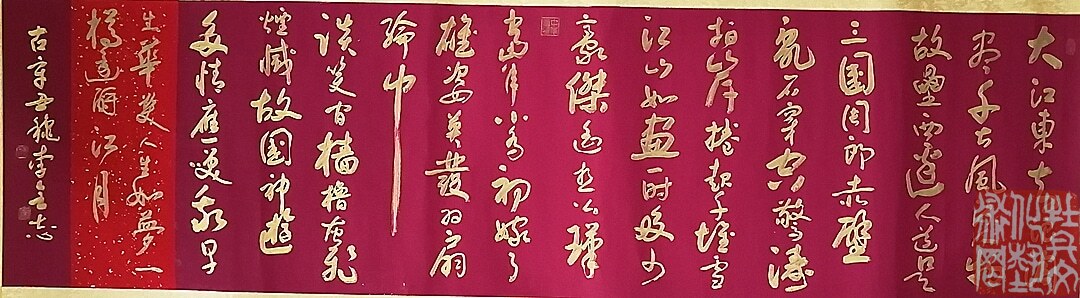 大江東去
尽千古風物
故壘西邊人道是
三國周郎赤壁
亂石穿空驚濤
拍岸捲起千堆雪
江山如畫一時多少
豪傑遙想公瑾
當年小喬初嫁了
雄姿英發羽扇
綸巾
談笑间檣櫓灰飛
煙滅故國神遊
多情應笑我早
生華髮人生如夢一
樽還酹江月